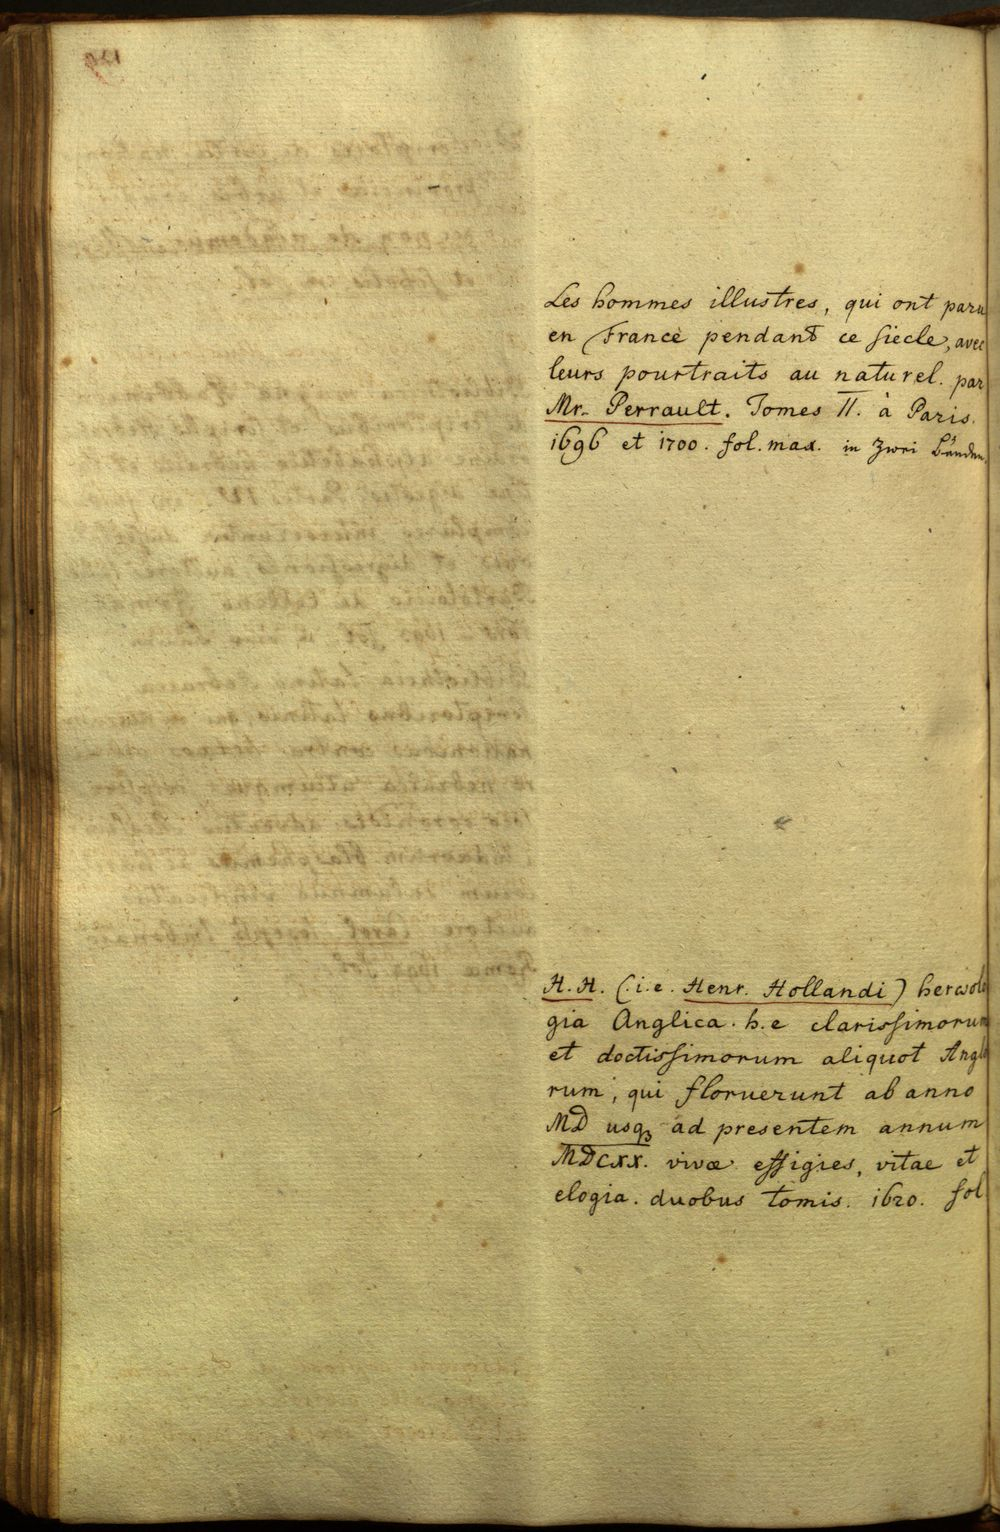 Les hommes illustres, qui ont paru
en France pendant ce siecle, avec
leurs pourtraits au naturel. par
Mr. Perrault. Tomes II. à Paris.
1696 et 1700. fol. max. in zwei Bänden.
H. H. (i. e. Henr. Hollandi) herωolo
gia Anglica. h. e clarissimorum
et doctissimorum aliquot Anglo
rum, qui floruerunt ab anno
MD usq₃ ad presentem annum
MDCXX. vivæ effigies, vitae et
elogia. duobus tomis. 1620. fol